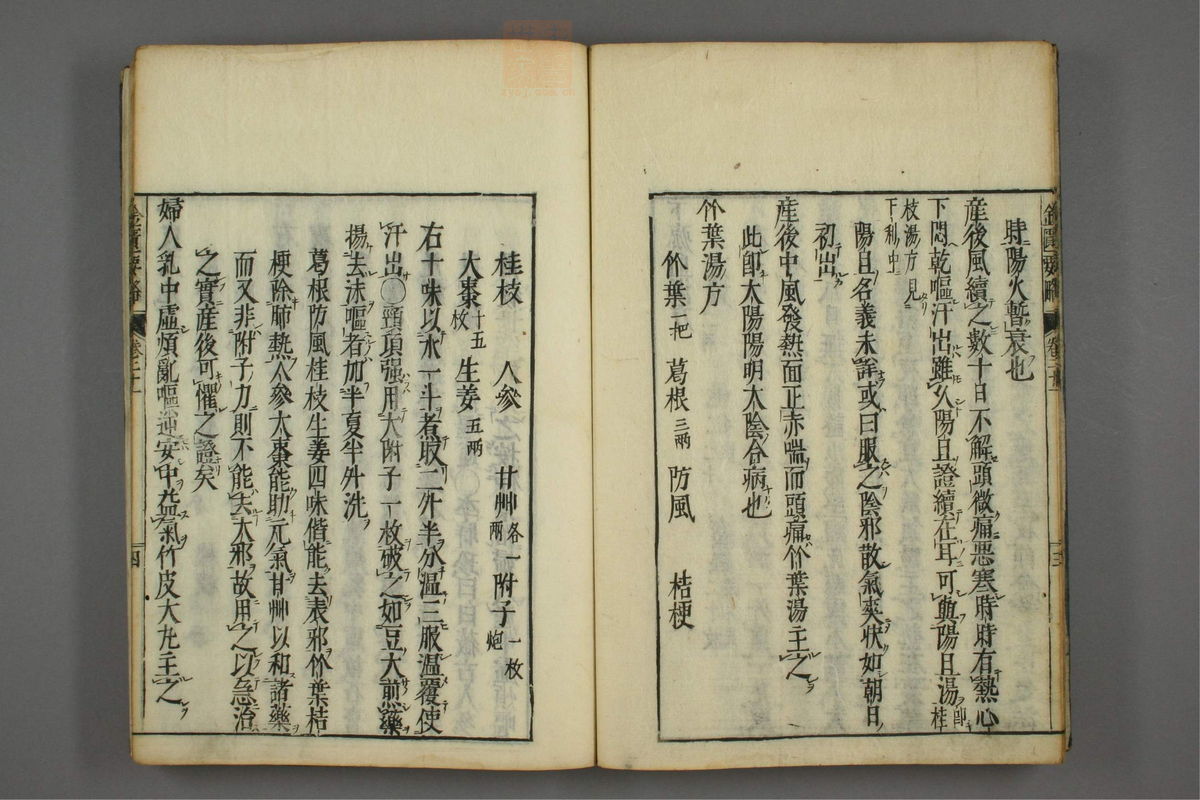 時陽火暫衰也
産後風續之數十日不解頭微痛惡寒時時有熱心
下悶乾嘔汗出雖久陽旦證續在耳可與陽旦湯即桂
枝湯方見
下利中
陽旦名義未詳或曰服之陰邪散氣爽狀如朝日
初出
産後中風發熱面正赤喘而頭痛竹葉湯主之
此卽太陽陽明太陰合病也
竹葉湯方
竹葉一把 葛根三兩 防風 桔梗
桂枝 人參 甘艸各一兩 附子一枚炮
大棗十五枚 生姜五兩
右十味以水一斗煮取二升半分溫三服溫覆使
汗出○頸項强用大附子一枚破之如豆大煎藥
揚去沫嘔者加半夏半升洗
葛根防風桂枝生姜四味偕能去表邪竹葉桔
梗除肺熱人參大棗能助元氣甘艸以和諸藥
而又非附子力則不能去大邪故用之以急治
之實産後可懼之證矣
婦人乳中虛煩亂嘔逆安中益氣竹皮大丸主之
金匱要略 卷二十一
四